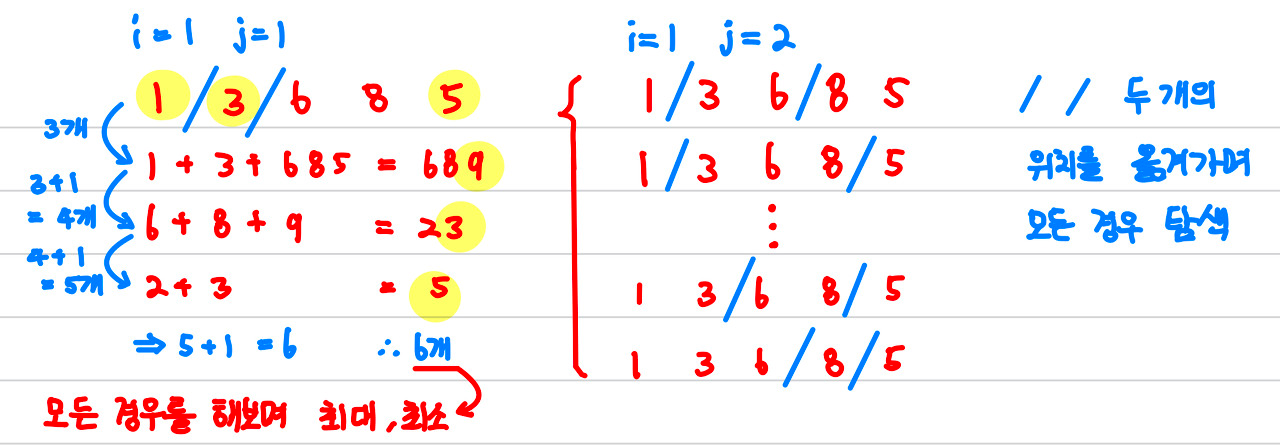 i=1 j=1
1 / 3 / 6 8 5
3개
1 + 3 + 685 = 689
3+1
= 4개
6 + 8 + 9 = 23
4+1
= 5개
2 + 3 = 5
⇒ 5+1 = 6 ∴ 6개
모든 경우를 해보며 최대, 최소
i=1 j=2
1 / 3 6 / 8 5
1 / 3 6 8 / 5
⋮
1 3 / 6 8 / 5
1 3 6 / 8 / 5
/ / 두 개의
위치를 옮겨가며
모든 경우 탐색